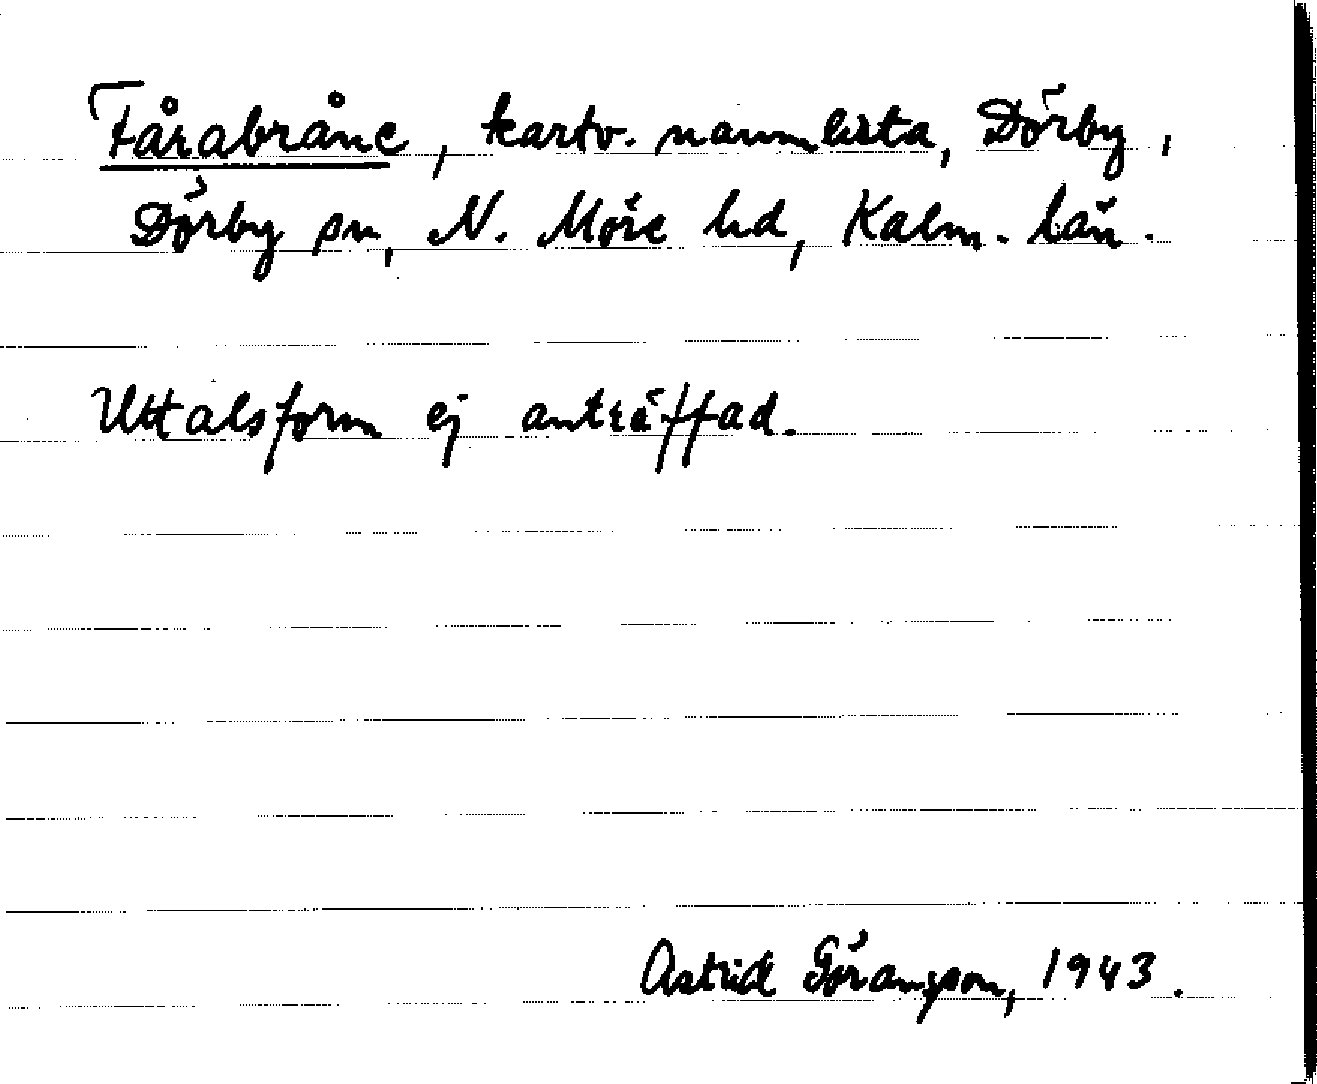 Fårabråne, kartv. namnlista, Dörby,
Dörby sn, N. Möre hd, Kalm. län.
Uttalsform ej anträffad.
Astrid Göransson, 1943.